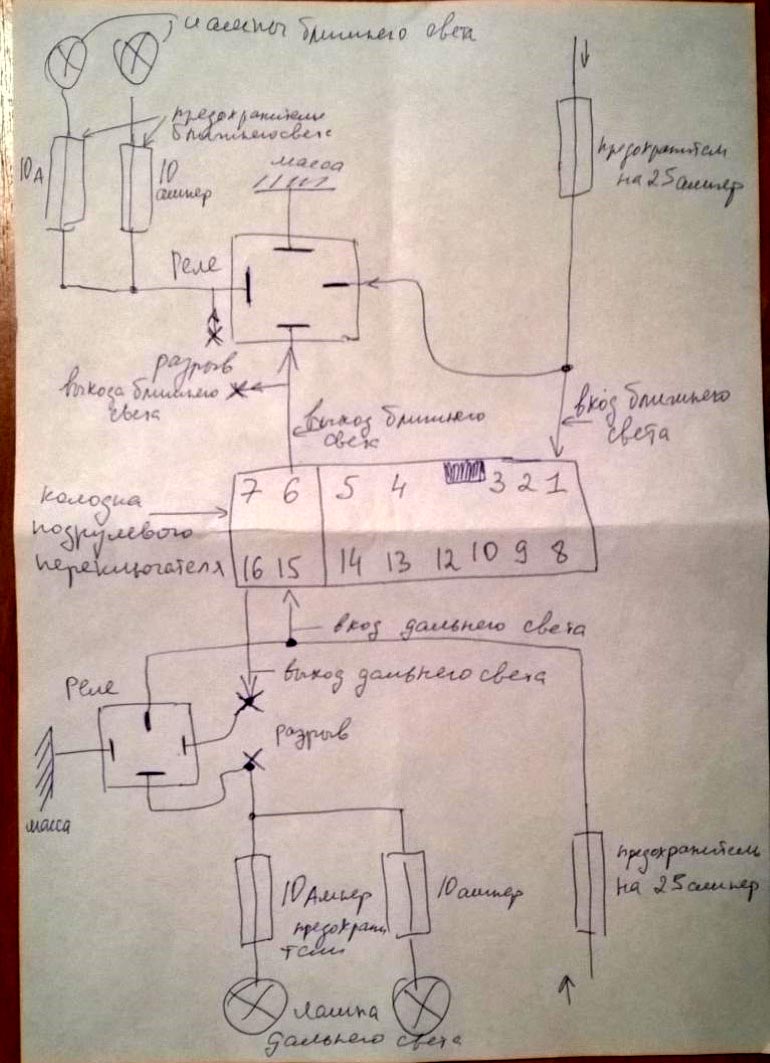 лампы ближнего света
предохранители
ближнего света
10А
10
ампер
масса
предохранитель
на 25 ампер
Реле
разрыв
выхода ближнего
света
выход ближнего
света
вход ближнего
света
колодка
подрулевого
переключателя
7 6 5 4 3 2 1
16 15 14 13 12 10 9 8
вход дальнего света
выход дальнего света
Реле
разрыв
масса
предохранитель
на 25 ампер
10 Ампер
предохрани
тели
10 ампер
Лампа
дальнего света